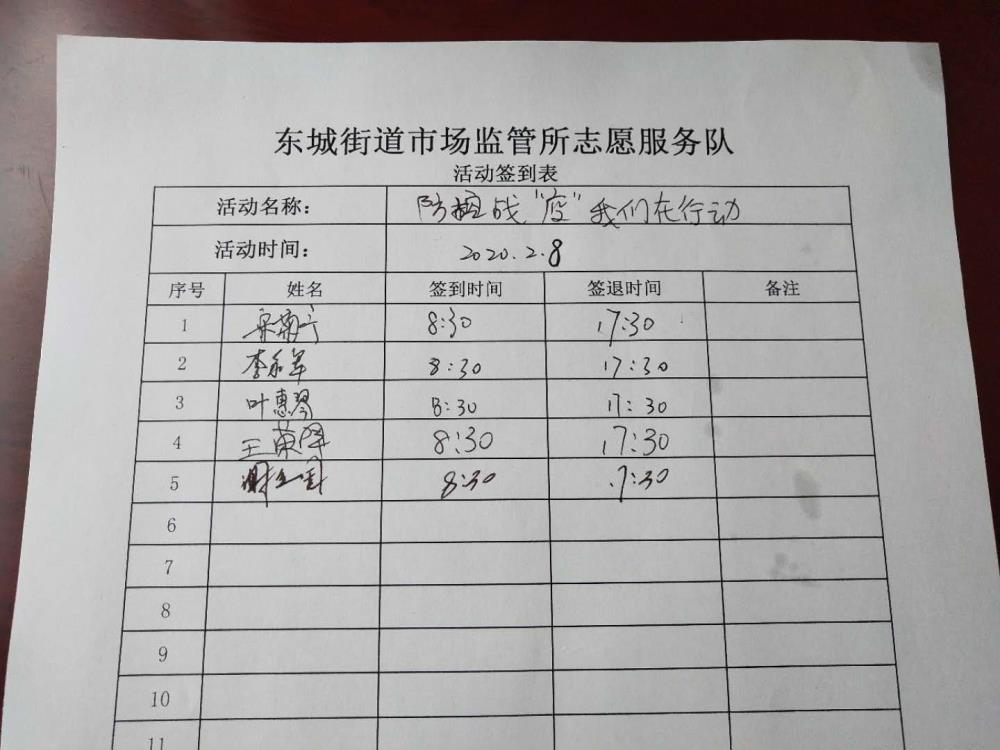 东城街道市场监管所志愿服务队
活动签到表
活动名称： 防控战“疫”我们在行动
活动时间： 2020.2.8
序号 姓名 签到时间 签退时间 备注
1 8:30 17:30
2 李永军 8:30 17:30
3 叶惠琴 8:30 17:30
4 王 8:30 17:30
5 谢 8:30 17:30
6
7
8
9
10
11